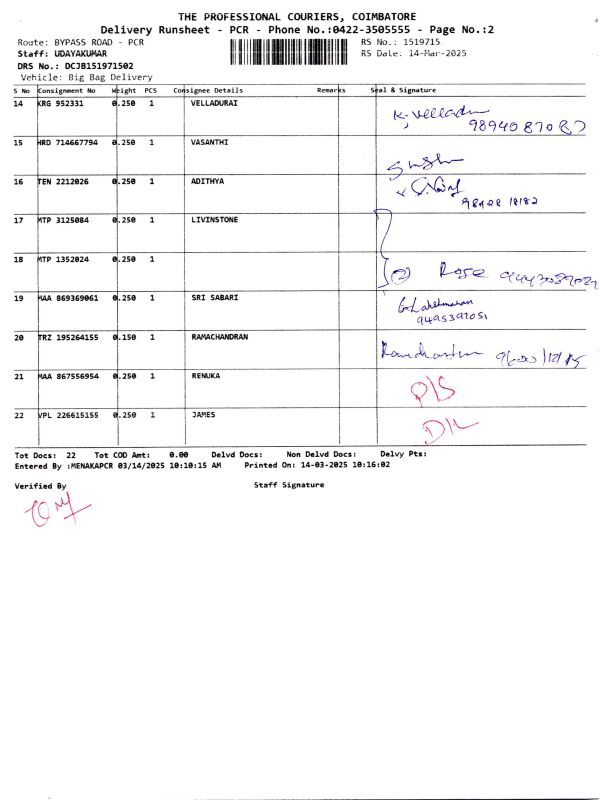 THE PROFESSIONAL COURIERS, COIMBATORE
Delivery Runsheet - PCR - Phone No.:0422-3505555 - Page No.:2
Route: BYPASS ROAD - PCR
RS No.: 1519715
Staff: UDAYAKUMAR
RS Date: 14-Mar-2025
DRS No.: DCJB151971502
Vehicle: Big Bag Delivery
S No Consignment No Weight PCS Consignee Details Remarks Seal & Signature
14 KRG 952331 0.250 1 VELLADURAI
K. Velladu
98940 87087
15 HRD 714667794 0.250 1 VASANTHI
16 TEN 2212026 0.250 1 ADITHYA
17 MTP 3125084 0.250 1 LIVINSTONE
18 MTP 1352024 0.250 1
② Rose
19 MAA 869369061 0.250 1 SRI SABARI
9495397051
20 TRZ 195264155 0.150 1 RAMACHANDRAN
21 MAA 867556954 0.250 1 RENUKA
P/S
22 VPL 226615155 0.250 1 JAMES
D/L
Tot Docs: 22 Tot COD Amt: 0.00 Delvd Docs: Non Delvd Docs: Delvy Pts:
Entered By :MENAKAPCR 03/14/2025 10:10:15 AM Printed On: 14-03-2025 10:16:02
Verified By Staff Signature